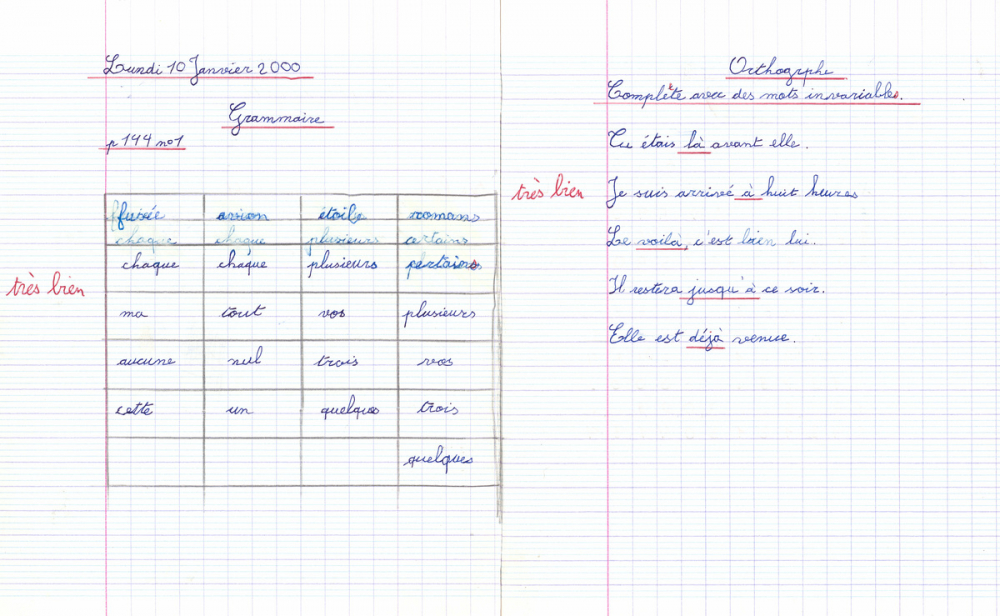 Lundi 10 Janvier 2000
Grammaire
p 144 no 1
très bien
fusée avion étoile romans
chaque chaque plusieurs certains
chaque chaque plusieurs certains
ma tout vos plusieurs
aucune nul trois vos
cette un quelques trois
quelques
Orthogrphe
Complète avec des mots invariables.
Tu étais là avant elle.
très bien
Je suis arrivé à huit heures
Le voilà, c'est bien lui.
Il restera jusqu'à ce soir.
Elle est déjà venue.